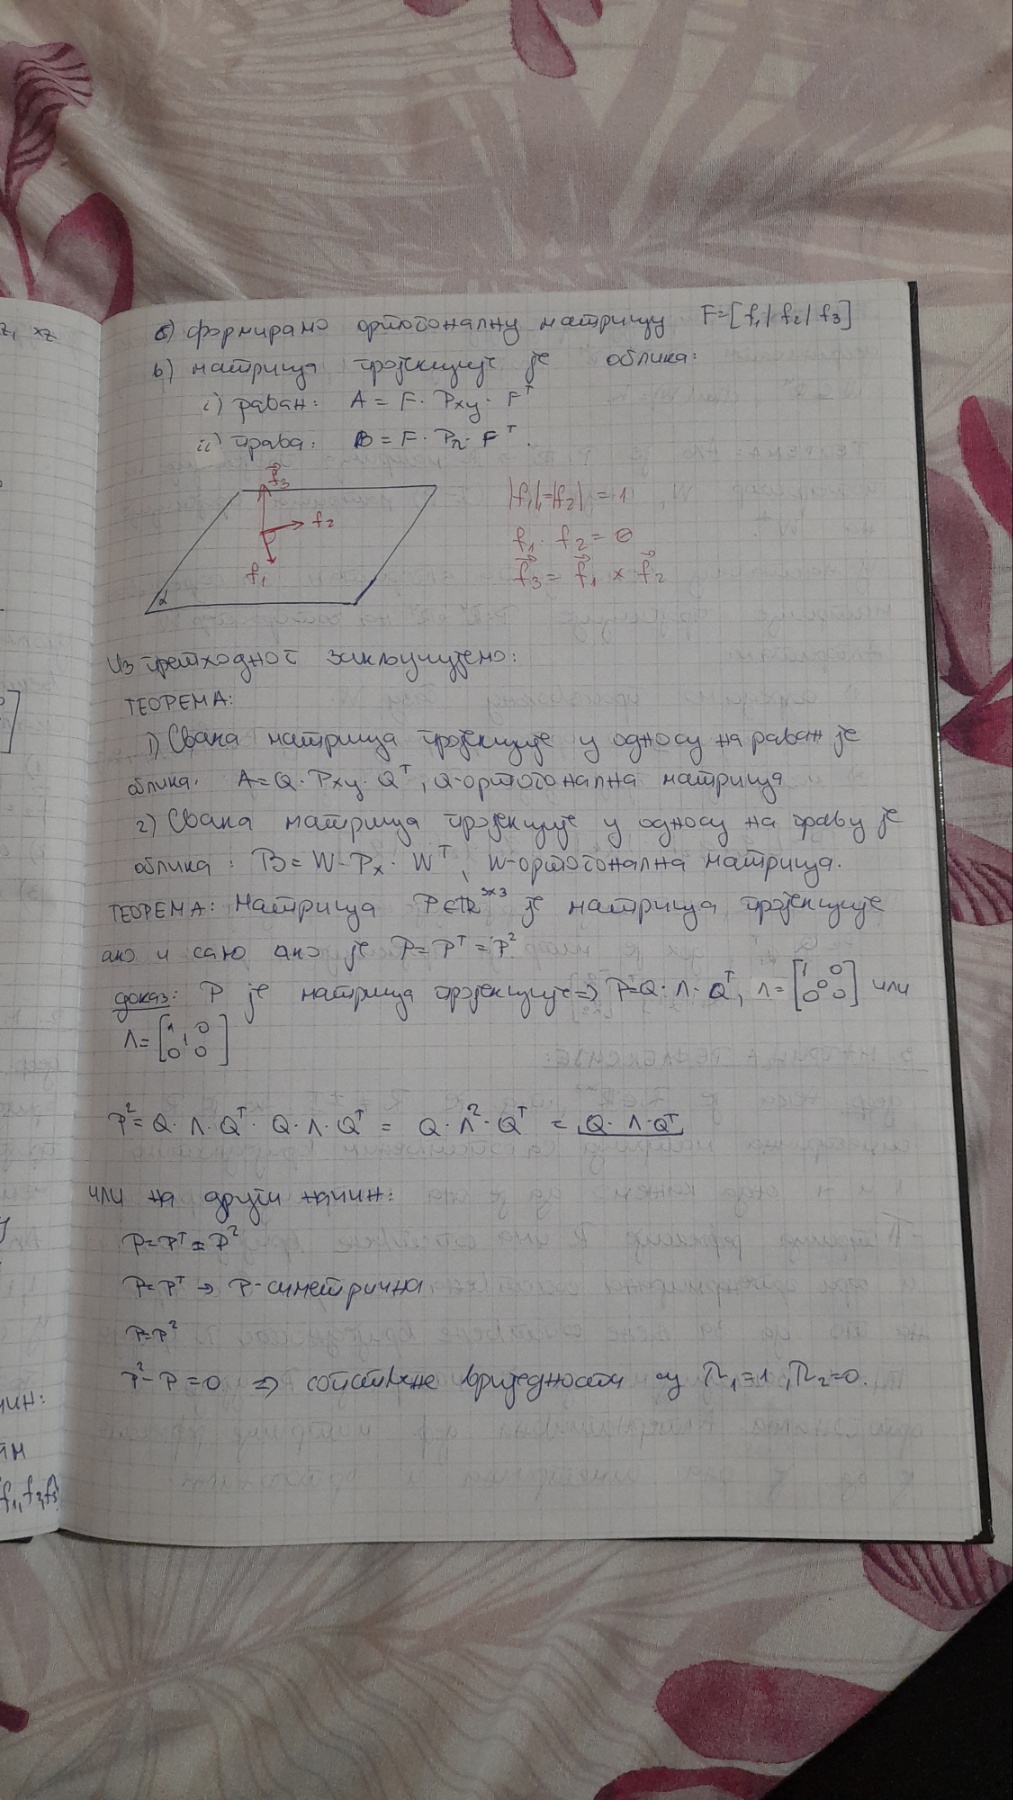 z, xz
б) формирамо ортогоналну матрицу F=[f₁|f₂|f₃]
в) матрица пројекције је облика:
i) раван: A = F · Pxy · Fᵀ
ii) права: B = F · Pz · Fᵀ.
f₃
f₂
f₁
α
|f₁|=|f₂| = 1
f₁ · f₂ = 0
f₃ = f₁ × f₂
Из претходног закључујемо:
ТЕОРЕМА:
1) Свака матрица пројекције у односу на раван је
облика: A = Q · Pxy · Qᵀ, Q-ортогонална матрица
2) Свака матрица пројекције у односу на праву је
облика: B = W · Px · Wᵀ, W-ортогонална матрица.
ТЕОРЕМА: Матрица P∈ℝ³ˣ³ је матрица пројекције
ако и само ако је P = Pᵀ = P².
доказ: P је матрица пројекције ⇒ P=Q · Λ · Qᵀ, Λ = [1 0 0 0 0] или
Λ = [1 0 1 0 0]
P² = Q · Λ · Qᵀ · Q · Λ · Qᵀ = Q · Λ² · Qᵀ = Q · Λ · Qᵀ
или на други начин:
P = Pᵀ = P²
P = Pᵀ → P-симетрична
P = P²
P² - P = 0 ⇒ сопствене вриједности су λ₁=1, λ₂=0.
чин:
f₁, f₂, f₃